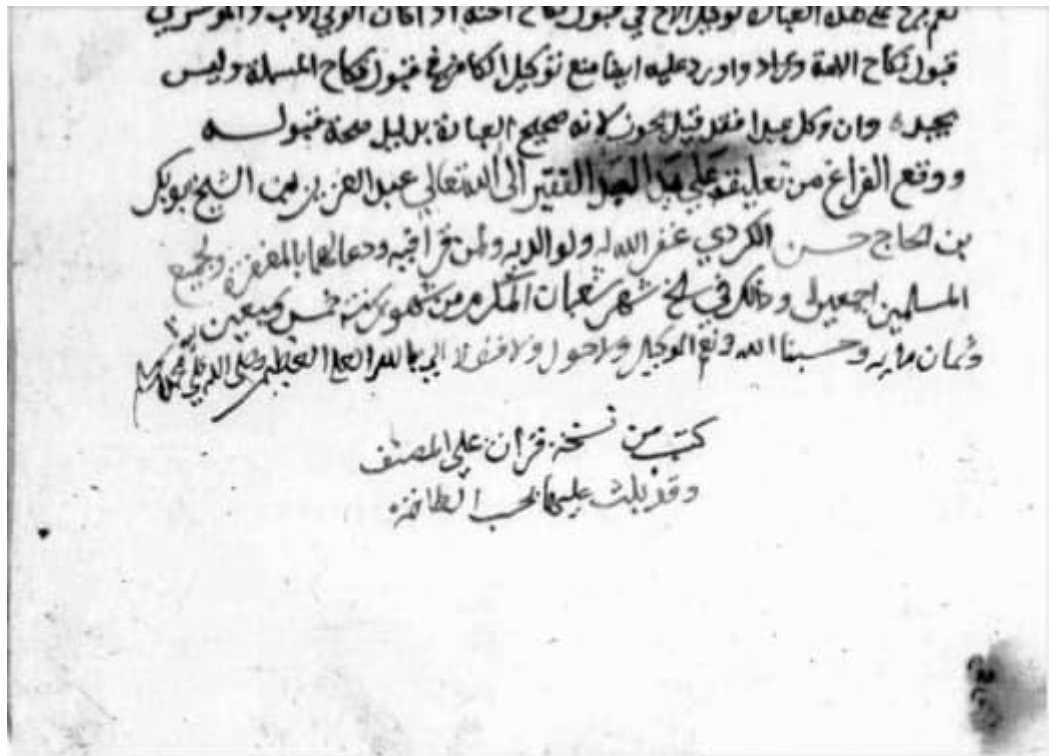 هذه العبارة توكيل الأخ في قبول نكاح أخته اذا كان الولي الاب والموسر في
قبول نكاح الامة واورد عليه ايضا منع توكيل الكافر في قبول نكاح المسلمة وليس
بجيد وان وكل عبدا فقد قيل يجوز لانه صحيح العبارة بدليل صحة قبوله
ووقع الفراغ من تعليقه علي يد العبد الفقير الى الله تعالى عبد العزيز بن الشيخ بوبكر
بن الحاج حسن الكردي غفر الله له ولوالديه ولمن قرا فيه ودعا لهما بالمغفرة ولجميع
المسلمين اجمعين وذلك في سلخ شهر شعبان المكرم من شهور سنة خمس وسبعين
وثمان مايه وحسبنا الله ونعم الوكيل ولا حول ولا قوة الا بالله العلي العظيم وصلى الله علي محمد
كتب من نسخة قرأت علي المصنف
وقد بلت عليها بحسب الطاقة